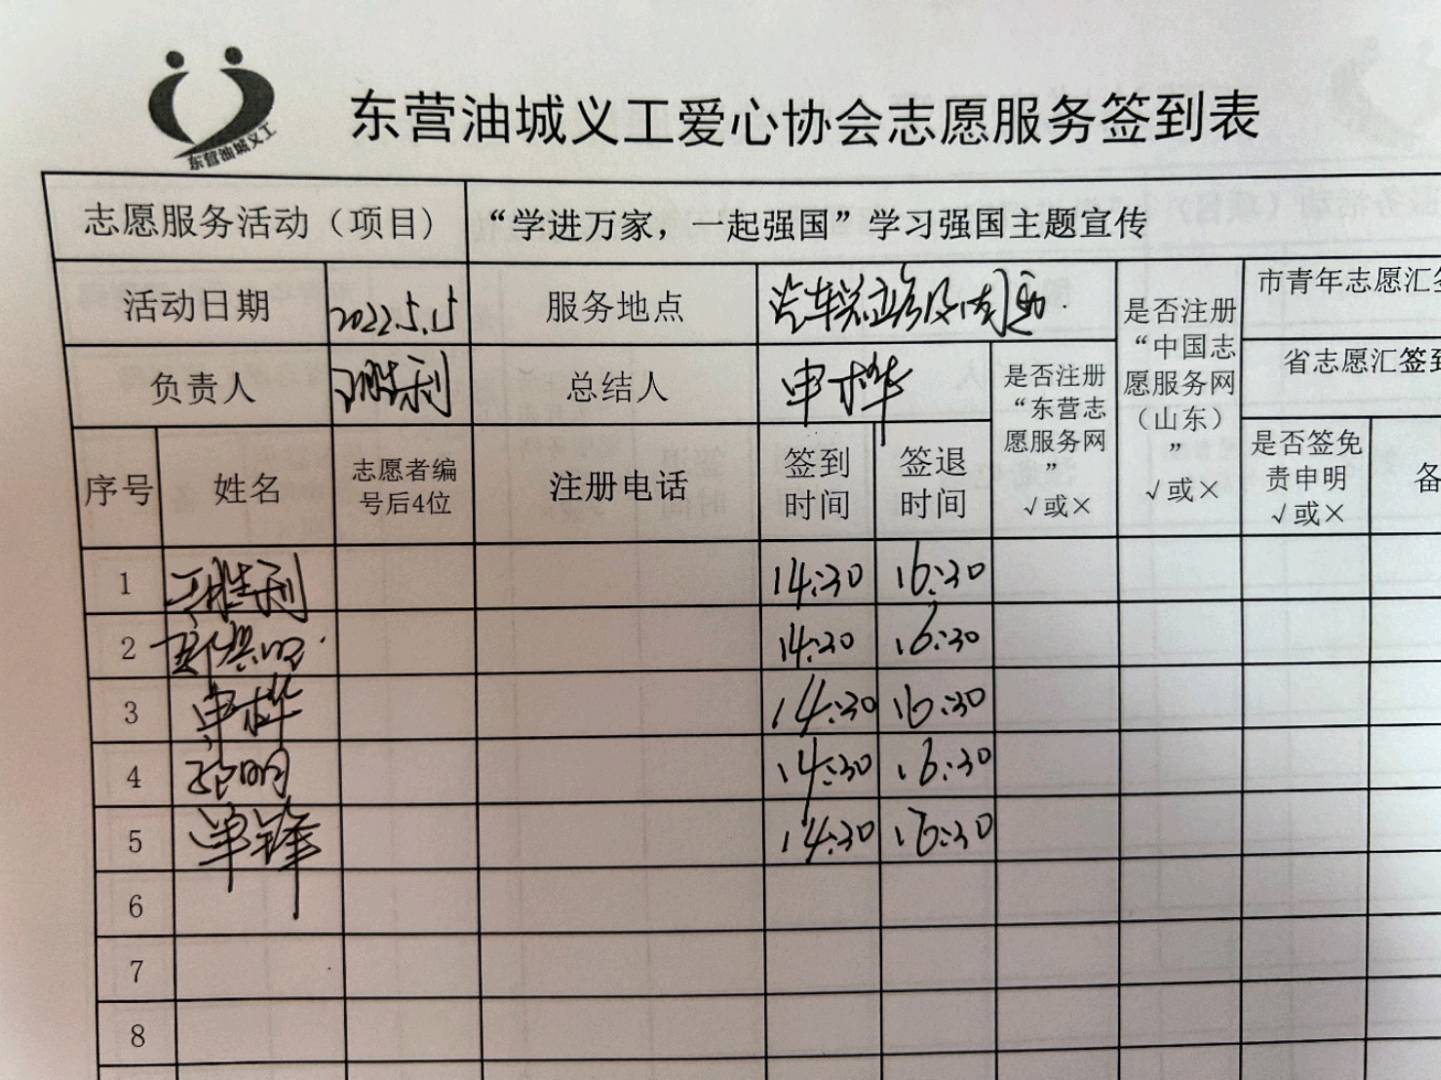 东营油城义工
东营油城义工爱心协会志愿服务签到表
志愿服务活动（项目） “学进万家，一起强国”学习强国主题宣传
活动日期 2022.5.15 服务地点 汽车总站及周边
负责人 王胜利 总结人 申桦
是否注册“东营志愿服务网” √或×
是否注册“中国志愿服务网（山东）” √或×
市青年志愿汇签
省志愿汇签到
序号 姓名 志愿者编号后4位 注册电话 签到时间 签退时间 是否签免责申明 √或× 备
1 王胜利 14:30 16:30
2 14:30 16:30
3 申桦 14:30 16:30
4 14:30 16:30
5 单锋 14:30 16:30
6
7
8